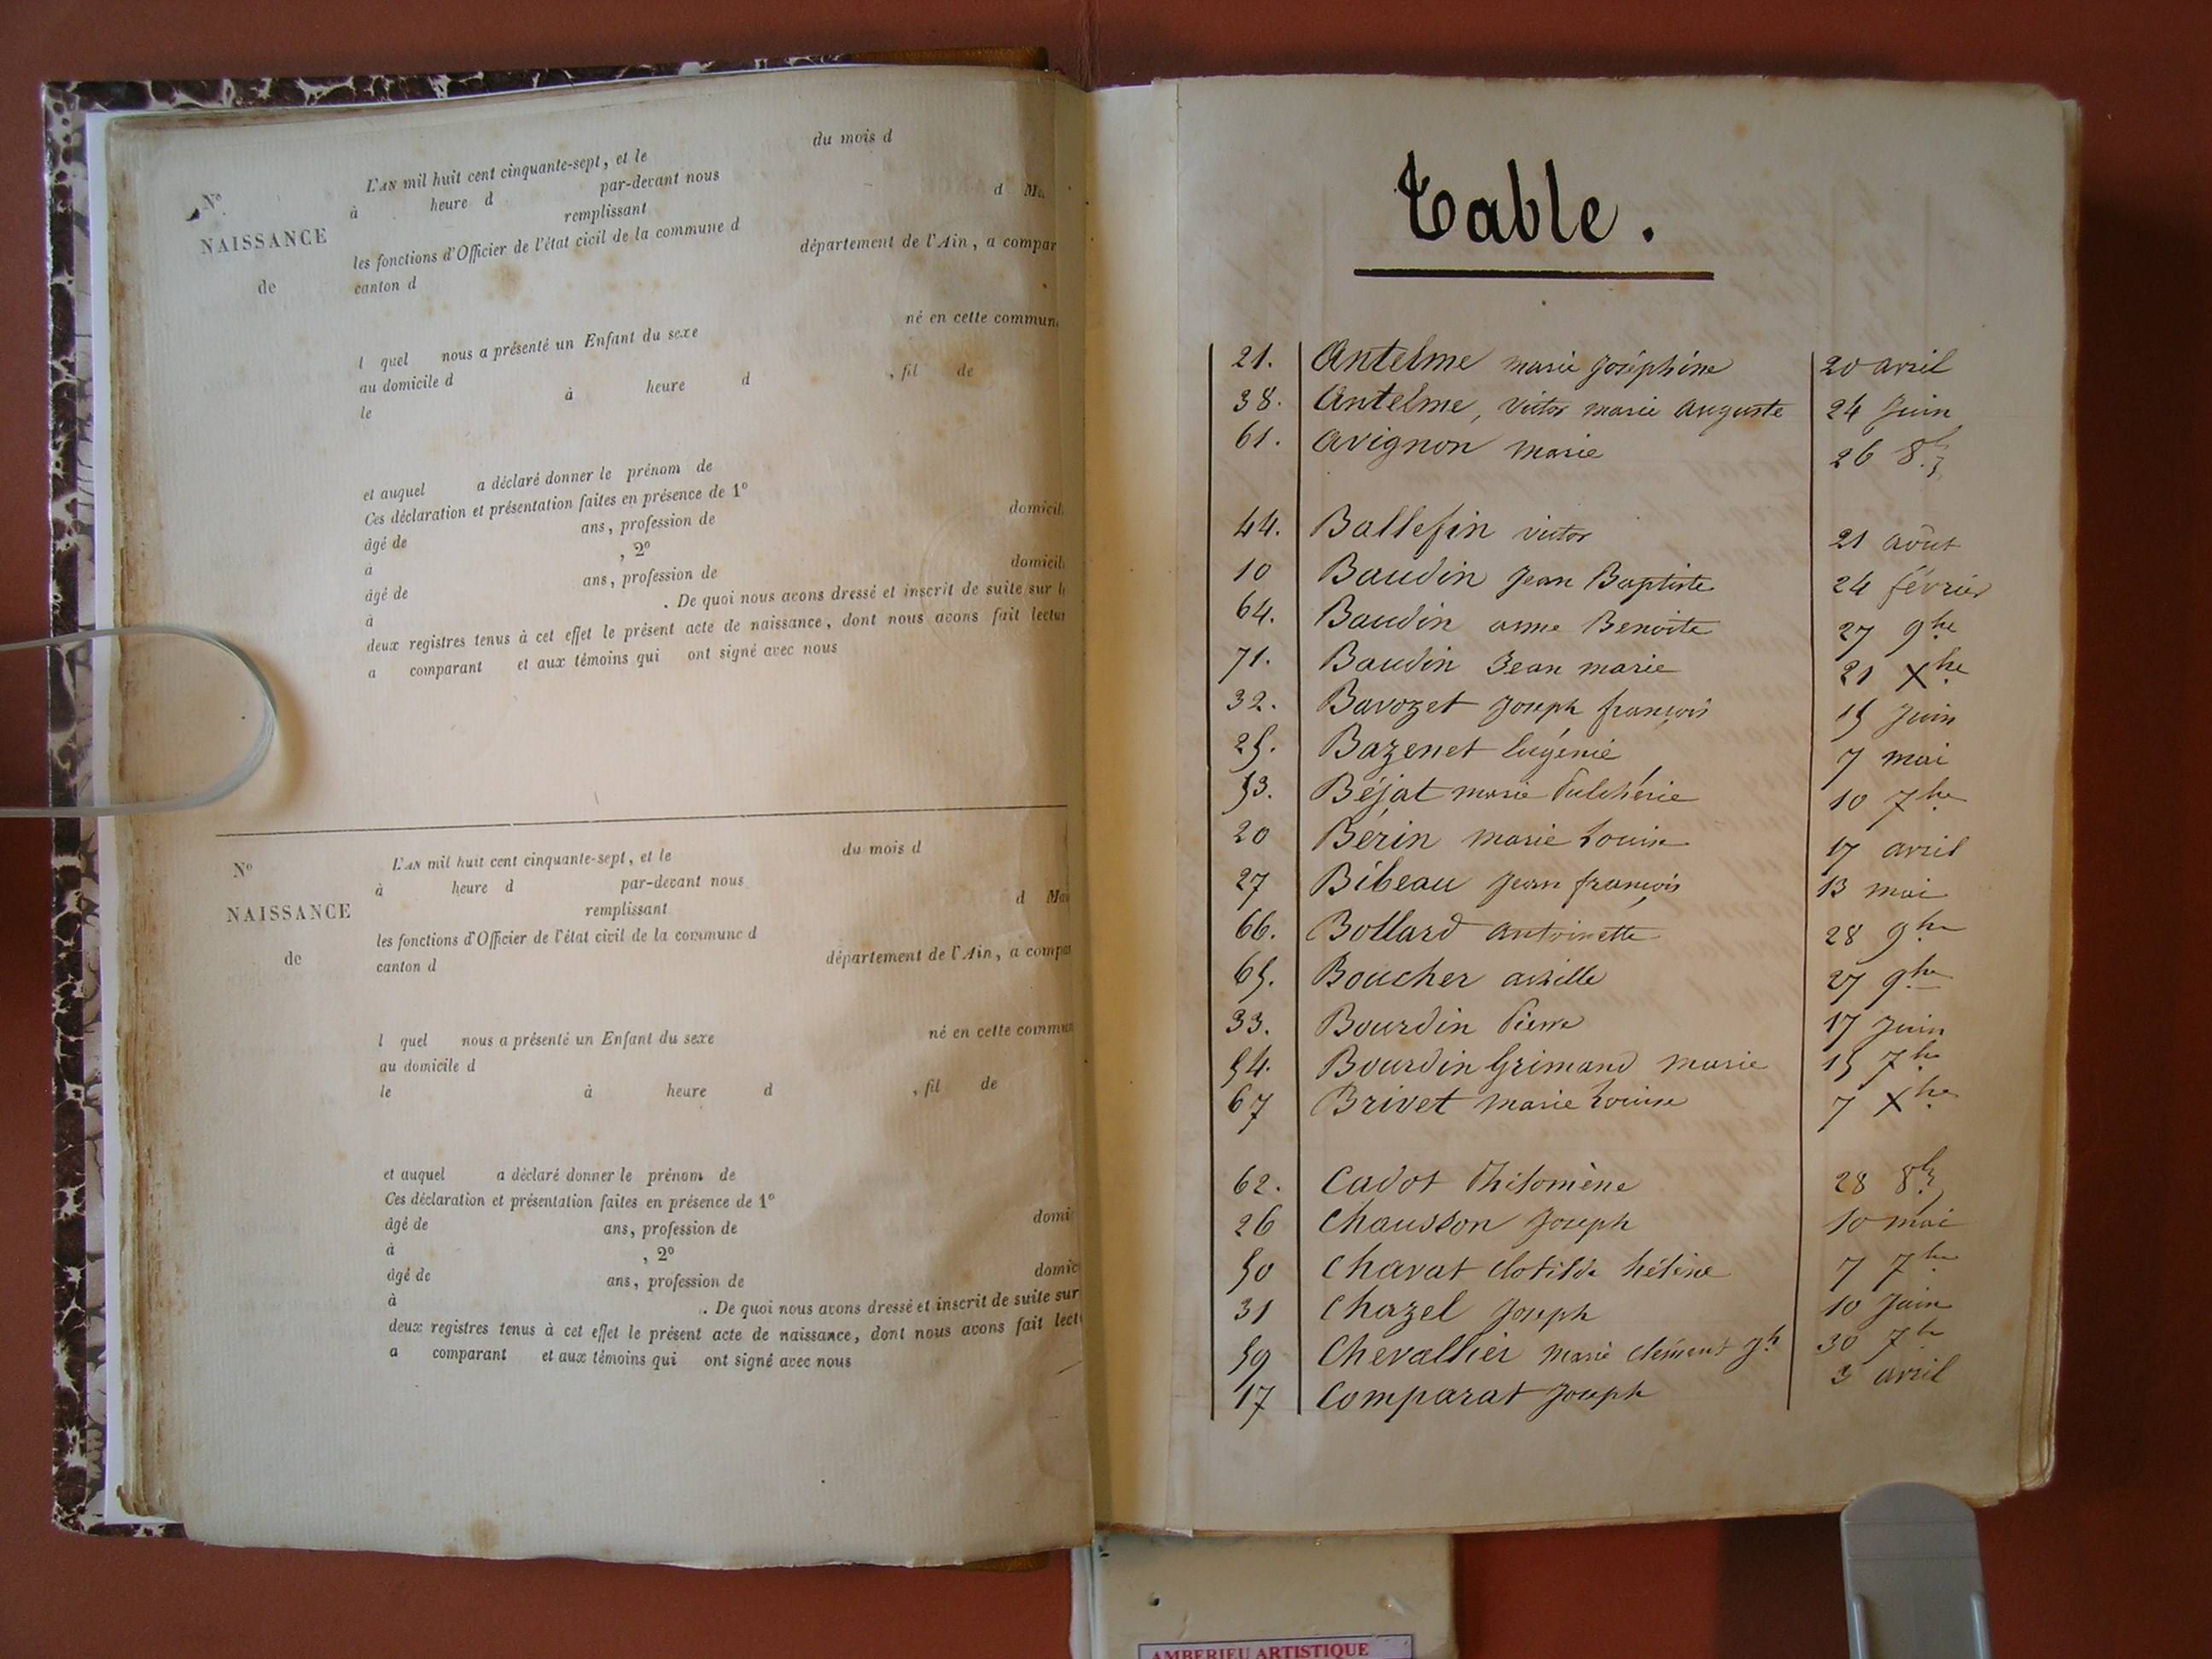 du mois d
L'AN mil huit cent cinquante-sept, et le
N°
à heure d par-devant nous
d Ma
remplissant
NAISSANCE
les fonctions d'Officier de l'état civil de la commune d
département de l'Ain, a compar
de
canton d
né en cette commun
l quel nous a présenté un Enfant du sexe
au domicile d
le à heure d , fil de
et auquel a déclaré donner le prénom de
Ces déclaration et présentation faites en présence de 1°
âgé de ans, profession de domicil
à , 2°
âgé de ans, profession de domicil
à . De quoi nous avons dressé et inscrit de suite sur l
deux registres tenus à cet effet le présent acte de naissance, dont nous avons fait lectur
a comparant et aux témoins qui ont signé avec nous
N° L'AN mil huit cent cinquante-sept, et le du mois d
à heure d par-devant nous
NAISSANCE remplissant d Ma
les fonctions d'Officier de l'état civil de la commune d
de canton d département de l'Ain, a compa
l quel nous a présenté un Enfant du sexe né en cette commu
au domicile d
le à heure d , fil de
et auquel a déclaré donner le prénom de
Ces déclaration et présentation faites en présence de 1°
âgé de ans, profession de domi
à , 2°
âgé de ans, profession de domic
à . De quoi nous avons dressé et inscrit de suite sur
deux registres tenus à cet effet le présent acte de naissance, dont nous avons fait lect
a comparant et aux témoins qui ont signé avec nous
Table.
21. Antelme marie Joséphine 20 avril
38. Antelme, victor marie Auguste 24 Juin
61. Avignon marie 26 8.bre
44. Ballefin victor 21 août
10 Baudin Jean Baptiste 24 février
64. Baudin anne Benoite 27 9bre
71. Baudin Jean marie 21 Xbre
32. Bavozet Joseph françois 15 Juin
25. Bazenet Eugénie 7 mai
53. Béjat marie Pulchérie 10 7bre
20 Bérin marie Louise 17 avril
27 Bibeau Jean françois 13 mai
66. Bollard antoinette 28 9bre
65. Boucher achille 27 9bre
33. Bourdin Pierre 17 Juin
54. Bourdin Grimand marie 15 7bre
67 Brivet marie Louise 7 Xbre
62. Cadot Philomène 28 8bre
26 Chausson Joseph 10 mai
50 Chavat Clotilde hélène 7 7bre
31 Chazel Joseph 10 Juin
59 Chevallier marie clément Jh 30 7bre
17 Comparat Joseph 3 avril
AMBERIEU ARTISTIQUE